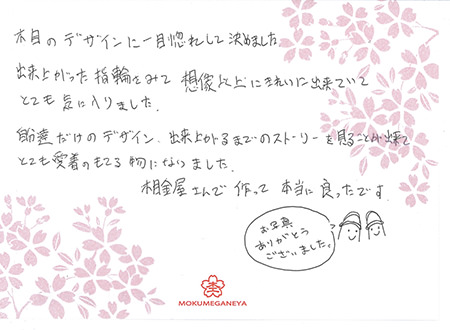 木目のデザインに一目惚れして決めました
出来上がった指輪をみて 想像以上にきれいに出来ていて
とても気に入りました。
自分達だけのデザイン、出来上がるまでのストーリーを見ることが出来て
とても愛着のもてる物になりました。
杢目金屋さんで 作って 本当に良かったです
お写真
ありがとう
ございました。
MOKUMEGANEYA